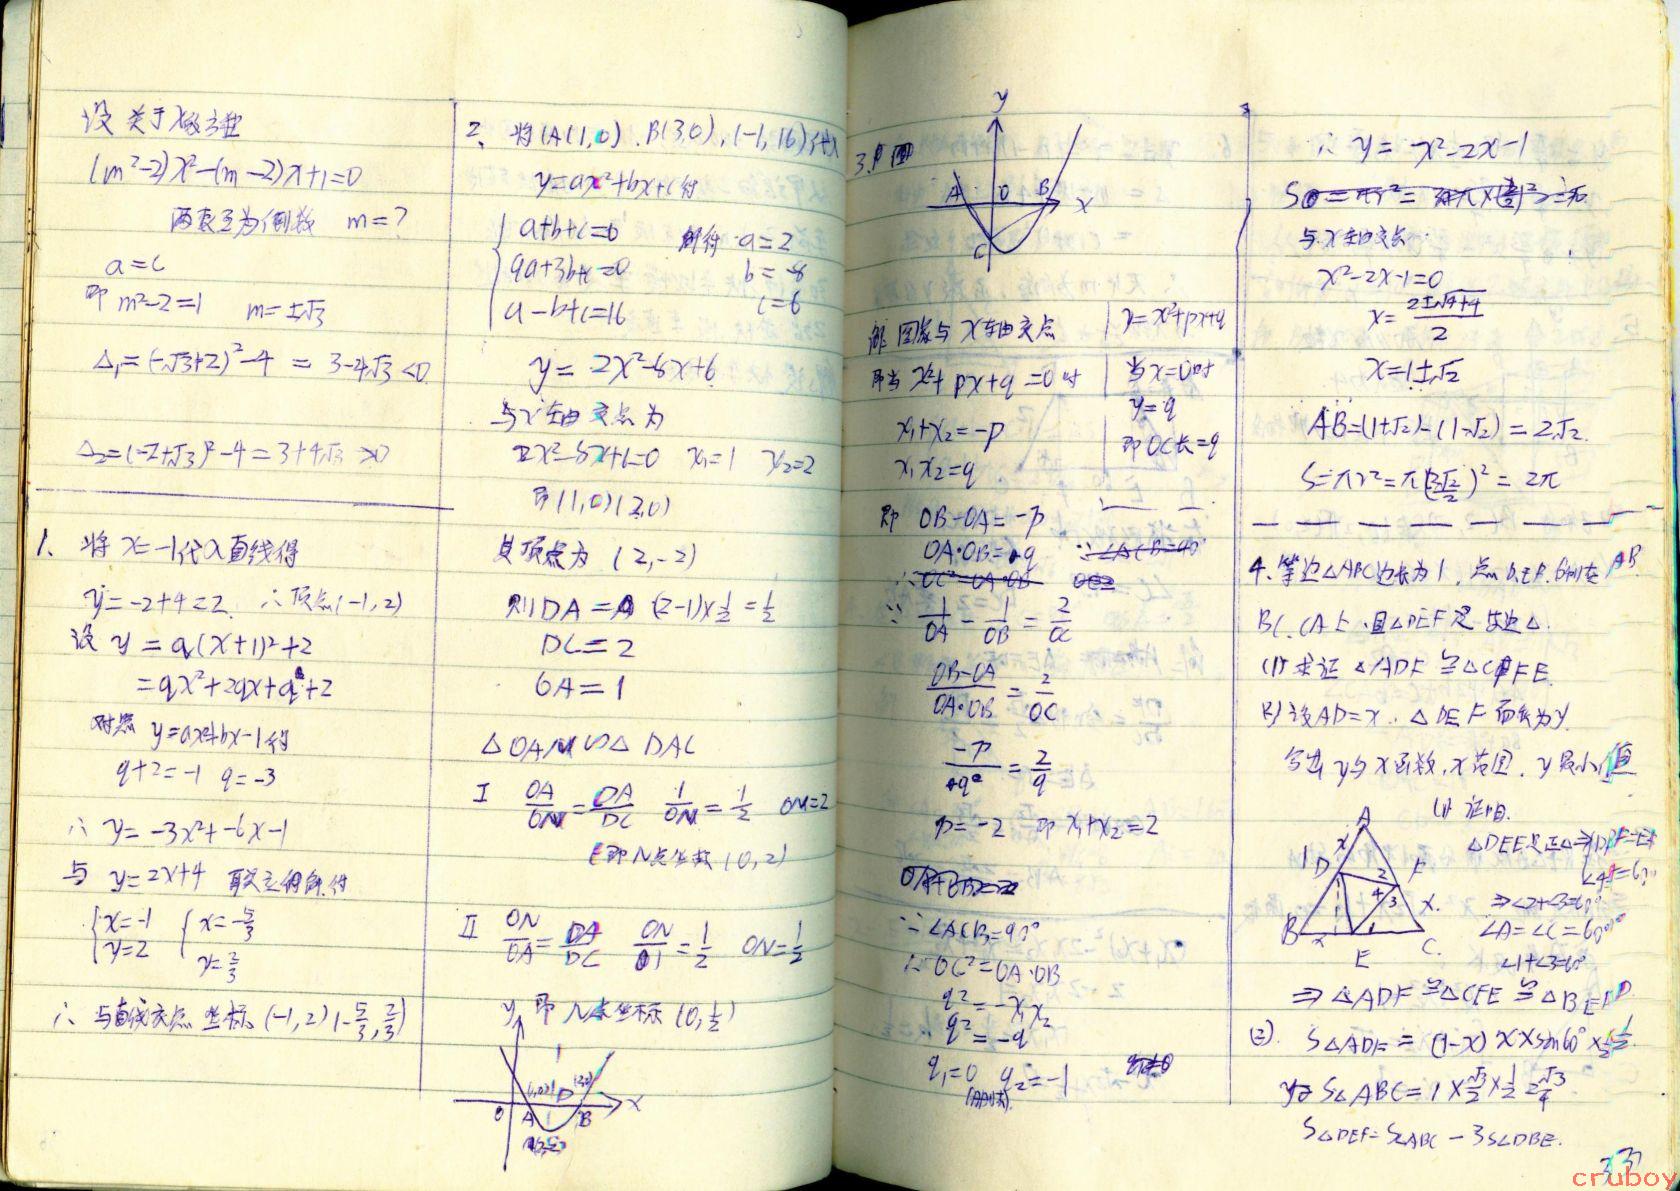 设关于x的方程
(m²-2)x²-(m-2)x+1=0
两根互为倒数 m=?
a=c
即 m²-2=1 m=±√3
△₁=(-√3+2)²-4 = 3-4√3<0
△₂=(-2+√3)²-4=3+4√3>0
1、将x=-1代入直线得
y=-2+4=2 ∴顶点(-1,2)
设 y=a(x+1)²+2
=ax²+2ax+a+2
对照 y=ax²+bx-1得
a+2=-1 a=-3
∴ y=-3x²+-6x-1
与 y=2x+4 联立得解得
{x=-1 y=2 {x=-5/3 y=2/3
∴与直线交点坐标(-1,2)(-5/3,2/3)
2、将(A(1,0).B(3,0),(-1,16)代入
y=ax²+bx+c得
{a+b+c=0 解得 a=2
9a+3b+c=0 b=-8
a-b+c=16 c=6
y=2x²-8x+6
与x轴交点为
2x²-8x+6=0 x₁=1 x₂=2
即(1,0)(3,0)
其顶点为(2,-2)
则DA=(2-1)×1/2=1/2
DC=2
OA=1
△OAN∽△DAC
I OA/ON=DA/DC 1/ON=1/2 ON=2
(即N点坐标(0,2)
II ON/OA=DA/DC ON/1=1/2 ON=1/2
即N点坐标(0,1/2)
y
D
O A B x
3.
y
A O B x
C
解 图象与x轴交点
即当x²+px+q=0时
x₁+x₂=-p
x₁x₂=q
y=x²+px+q
当x=0时
y=q
即OC长=q
即 OB-OA=-p
OA·OB=-q
∵ 1/OA - 1/OB = 2/OC
(OB-OA)/(OA·OB) = 2/OC
-p/-q = 2/q
p=-2 即x₁+x₂=2
∵∠ACB=90°
∴OC²=OA·OB
q²=-x₁x₂
q²=-q
q₁=0 q₂=-1
∴ y=x²-2x-1
与x轴交点
x²-2x-1=0
x=(2±√4+4)/2
x=1±√2
AB=(1+√2)-(1-√2)=2√2.
S=πr²=π(2√2/2)²=2π
4.等边△ABC边长为1,点D.E.F.分别在AB.
BC.CA上.且△DEF是等边△.
(1)求证 △ADF≌△CFE.
(2)设AD=x.△DEF面积为y.
写出y与x函数,x范围.y最小值
A
x
D F
1
2
4 3
x
B x E C
(1)证明.
△DEF是正△⇒DF=EF
∠4=60°
⇒∠2+∠3=60°
∠A=∠C=60°
∠1+∠3=60°
⇒△ADF≌△CFE≌△BED
(2). S△ADF=(1-x)x×sin60°×1/2
S△ABC=1×√3/2×1/2=√3/4
S△DEF=S△ABC-3S△DBE.
cruboy